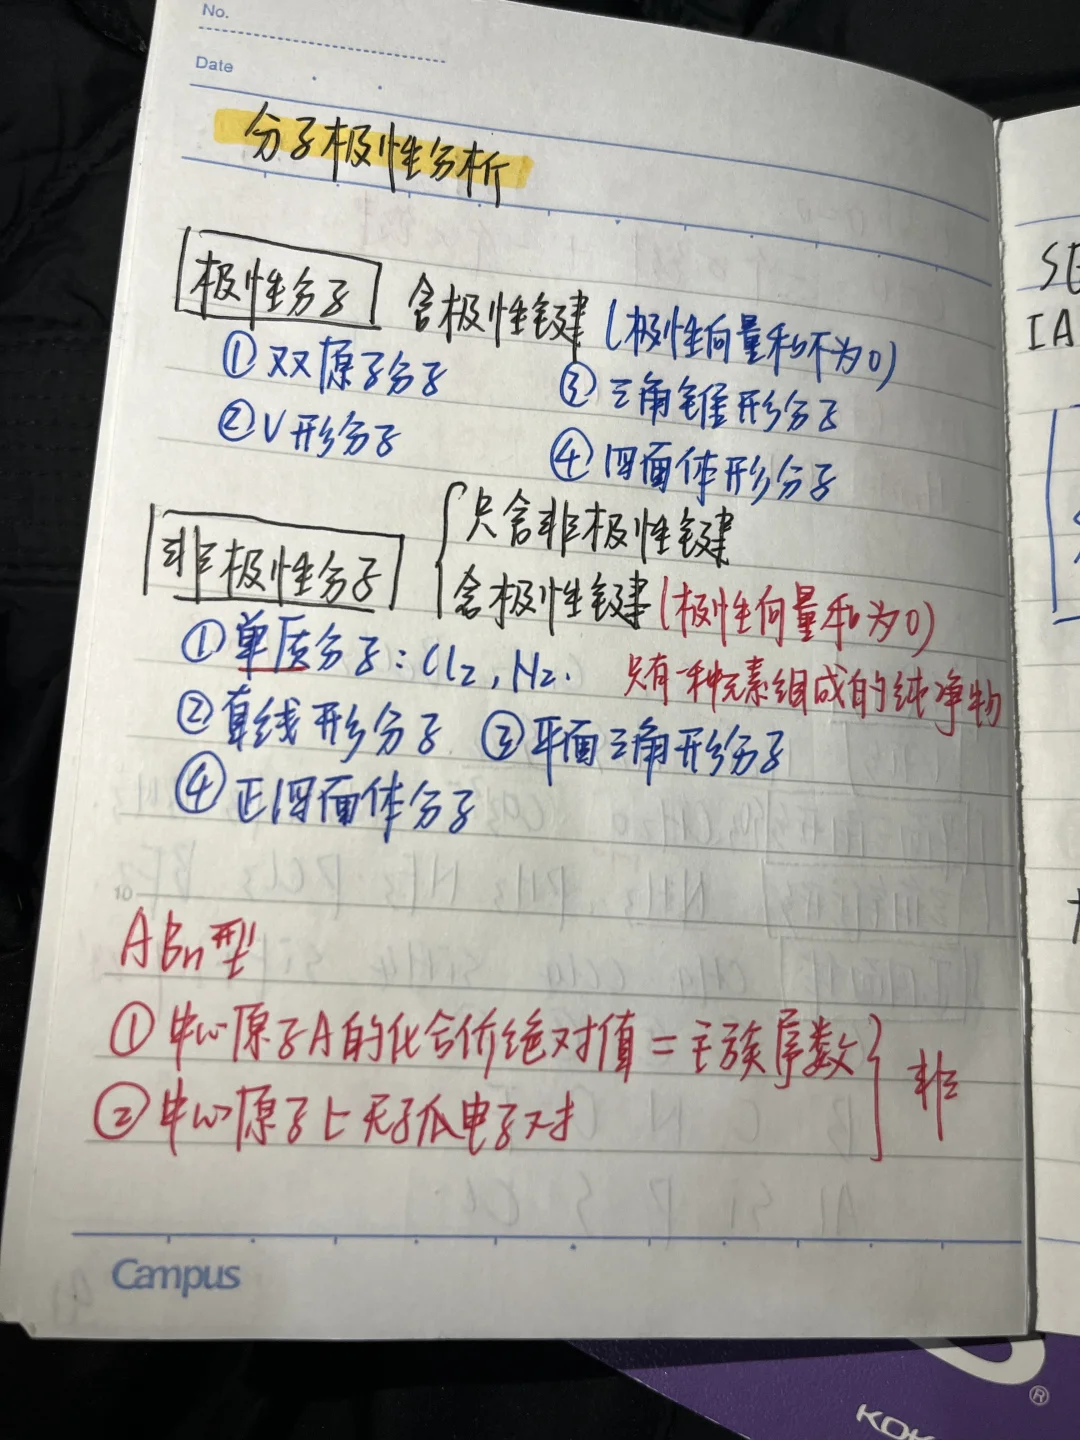 No.
Date
分子极性分析
极性分子 含极性键(极性向量和不为0)
①双原子分子 ③三角锥形分子
②V形分子 ④四面体形分子
非极性分子 只含非极性键
含极性键(极性向量和为0)
①单质分子:Cl₂,N₂. 只有一种元素组成的纯净物
②直线形分子 ③平面三角形分子
④正四面体分子
10
ABn型
①中心原子A的化合价绝对值=主族序数 非
②中心原子上无孤电子对
Campus
IA
®
KOK